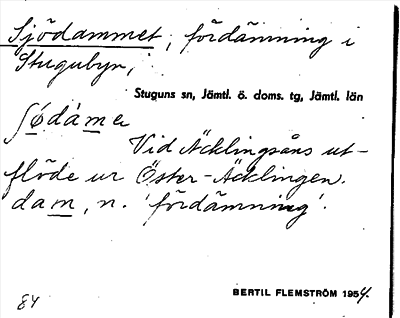 Sjödammet, fördämning i
Stugubyn,
Stuguns sn, Jämtl. ö. doms. tg, Jämtl. län
ʃödàme
Vid Äcklingsåns ut-
flöde ur Öster-Äcklingen.
dam, n. 'fördämning'.
BERTIL FLEMSTRÖM 1954.
84